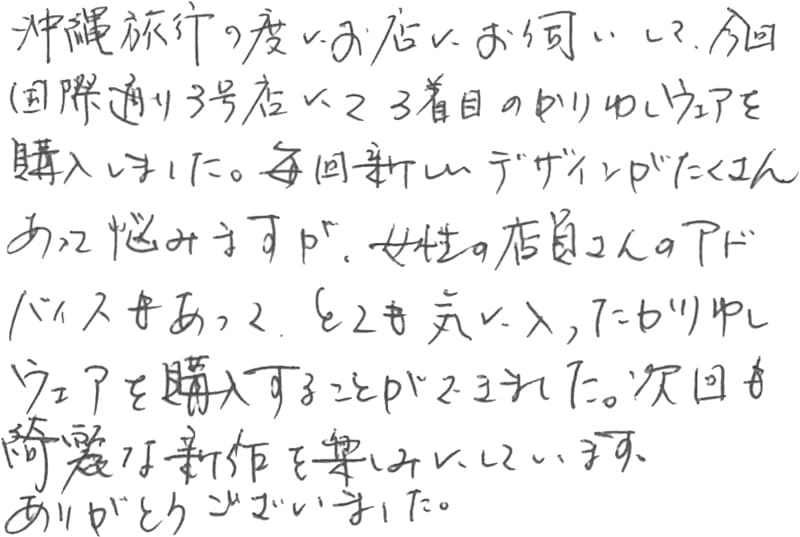 沖縄旅行の度にお店にお伺いして、今回
国際通り3号店にて3着目のかりゆしウェアを
購入しました。毎回新しいデザインがたくさん
あって悩みますが、女性の店員さんのアド
バイスもあって、とても気に入ったかりゆし
ウェアを購入することができました。次回も
綺麗な新作を楽しみにしています。
ありがとうございました。